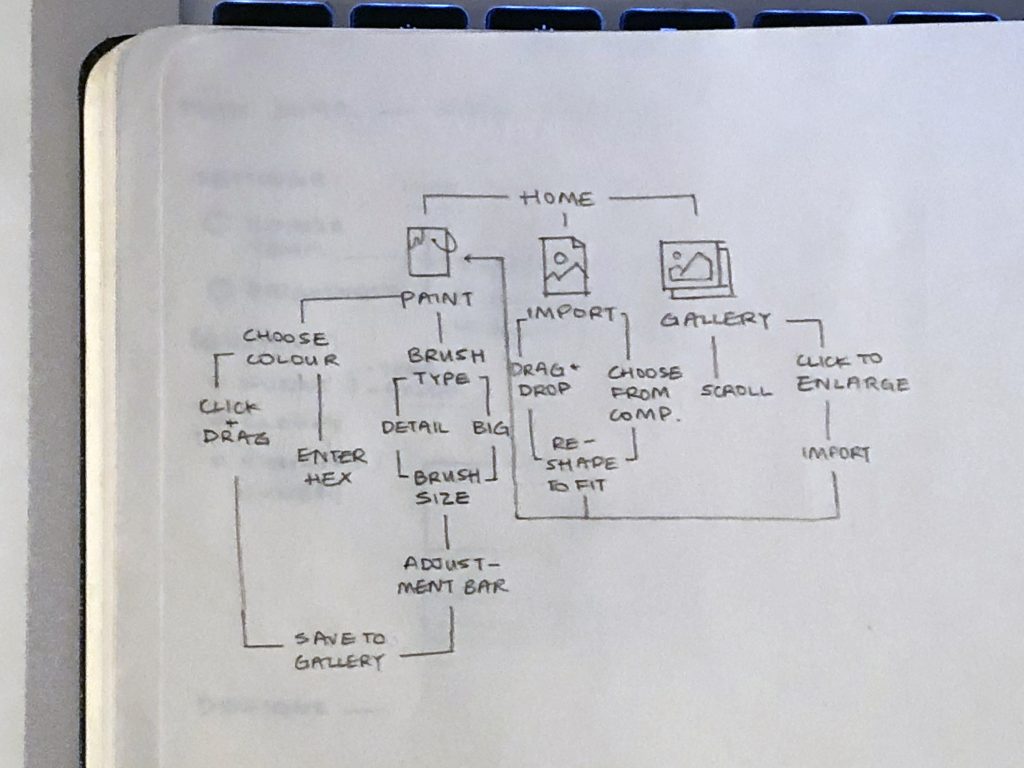 HOME
PAINT
IMPORT
GALLERY
CHOOSE
COLOUR
BRUSH
TYPE
DRAG +
DROP
CHOOSE
FROM
COMP.
SCROLL
CLICK TO
ENLARGE
CLICK
+
DRAG
ENTER
HEX
DETAIL
BIG
RE-
SHAPE
TO FIT
IMPORT
BRUSH
SIZE
ADJUST-
MENT BAR
SAVE TO
GALLERY